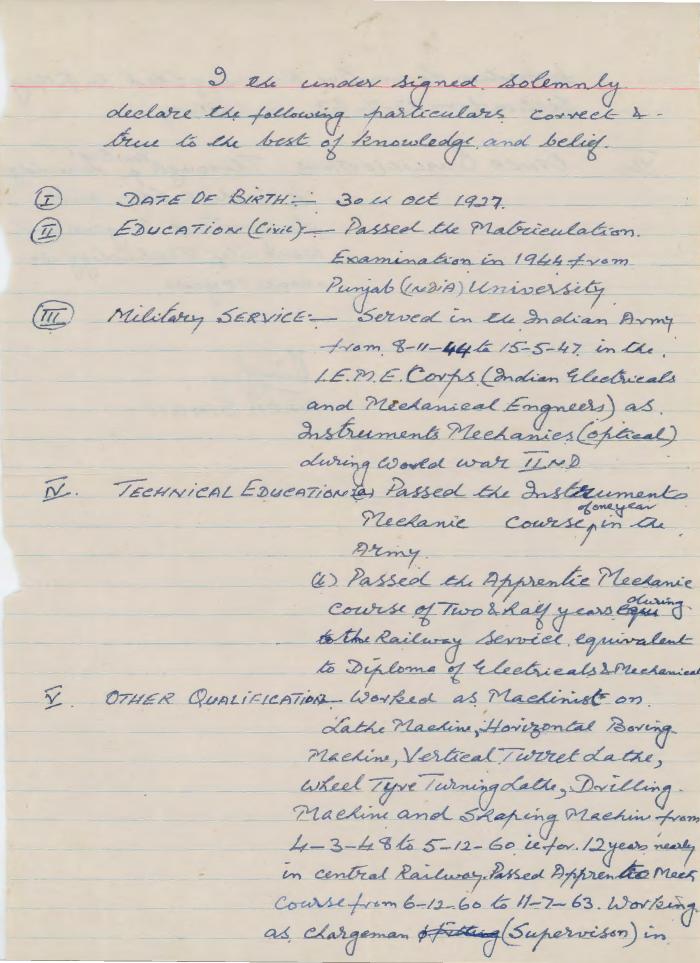 I the under signed solemnly
declare the following particulars correct & -
true to the best of knowledge and belief.
I DATE OF BIRTH:- 30th Oct 1927.
II EDUCATION (Civil):- Passed the Matriculation
Examination in 1944 from
Punjab (INDIA) University
III Military SERVICE:- Served in the Indian Army
from 8-11-44 to 15-5-47 in the
I.E.M.E. Corps (Indian Electricals
and Mechanical Engneers) as
Instruments Mechanics (optical)
during World war IIND
IV. TECHNICAL EDUCATION (a) Passed the Instruments
Mechanic Course of one year in the
Army.
(b) Passed the Apprentic Mechanic
Course of Two & half years during
the Railway Service equivalent
to Diploma of Electricals & Mechanical
V. OTHER QUALIFICATION - Worked as Machinist on
Lathe Machine, Horizontal Boring
Machine, Vertical Turret Lathe,
Wheel Tyre Turning Lathe, Drilling
Machine and Shaping Machin from
4-3-48 to 5-12-60 ie for 12 years nearly
in central Railway. Passed Apprentic Mech
Course from 6-12-60 to 11-7-63. Working
as Chargeman (Supervison) in